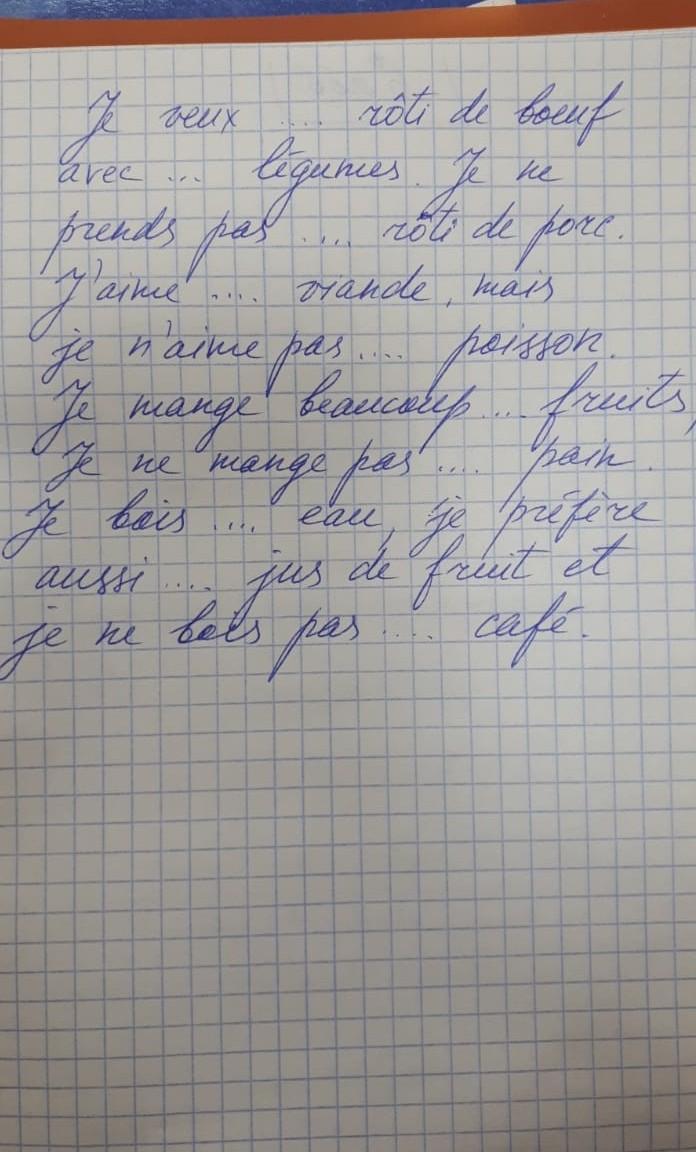 Je veux .... rôti de boeuf
avec ... légumes. Je ne
prends pas .... rôti de porc.
J'aime .... viande, mais
je n'aime pas .... poisson.
Je mange beaucoup .... fruits,
Je ne mange pas .... pain.
Je bois .... eau, je préfère
aussi .... jus de fruit et
je ne bois pas .... café.